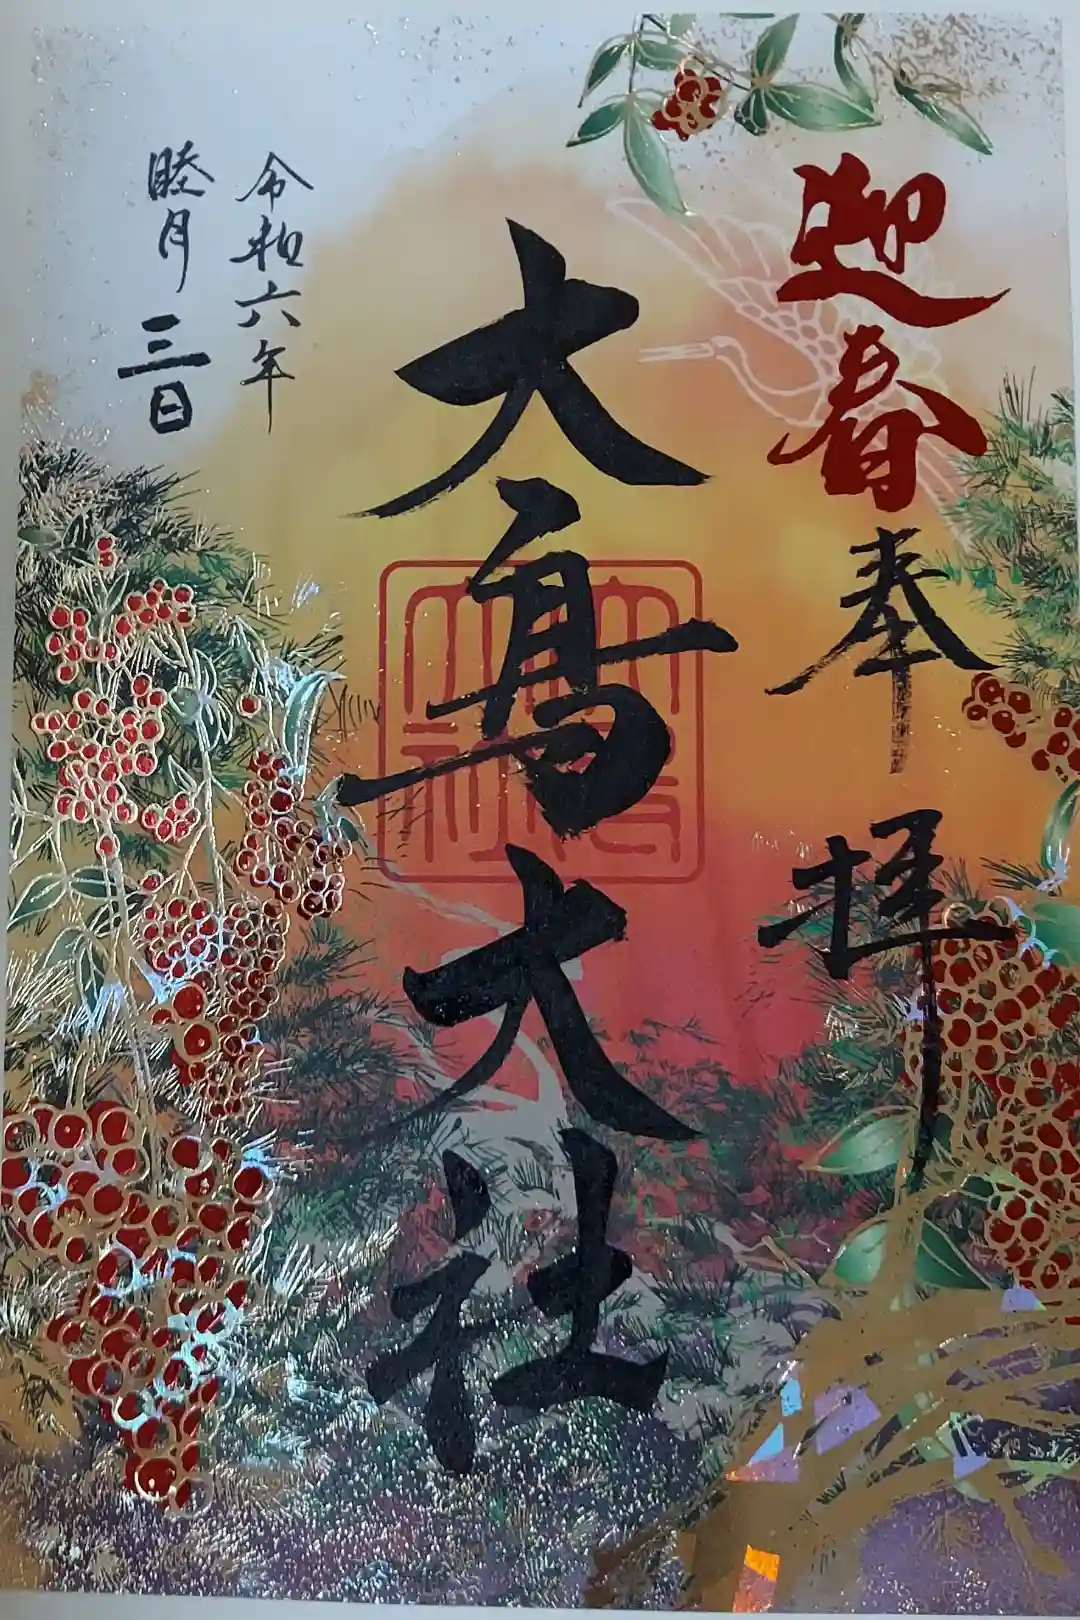 迎春
奉拝
大鳥大社
大鳥大社
令和六年
睦月三日